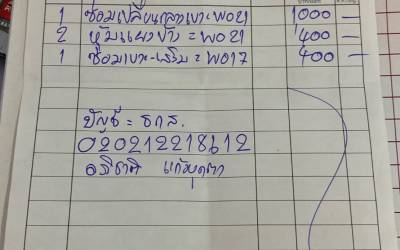 1 ซ่อมเปลี่ยนกลางเบาะ W021 1000 —
2 หุ้มแผงข้าง = W021 400 —
1 ซ่อมเบาะ-เสริม = W017 400 —
บัญชี = ธกส.
020212218612
อธิชาติ